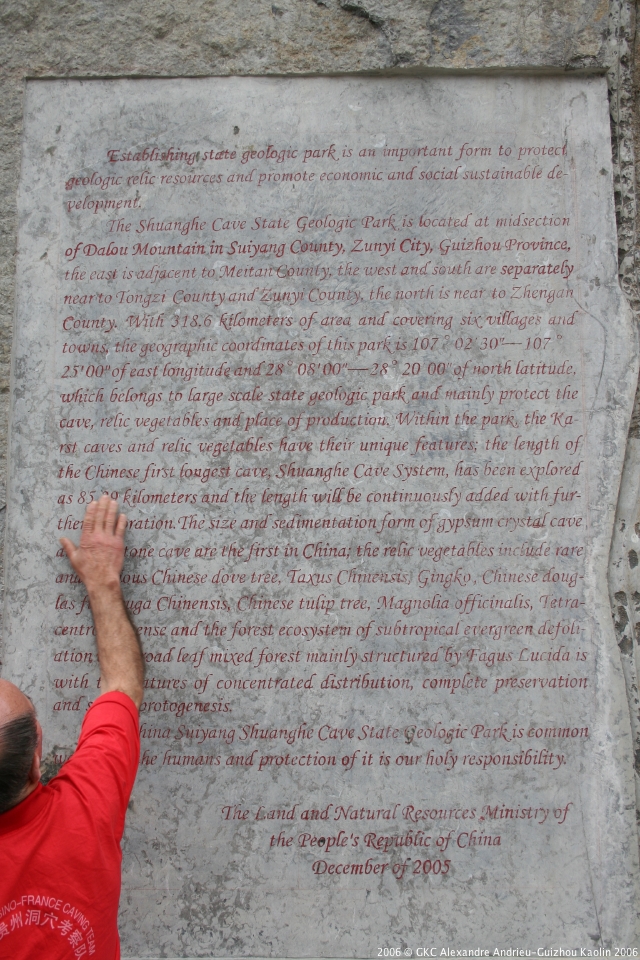 Establishing state geologic park is an important form to protect
geologic relic resources and promote economic and social sustainable de-
velopment.
The Shuanghe Cave State Geologic Park is located at midsection
of Dalou Mountain in Suiyang County, Zunyi City, Guizhou Province,
the east is adjacent to Meitan County, the west and south are separately
near to Tongzi County and Zunyi County, the north is near to Zhengan
County. With 318.6 kilometers of area and covering six villages and
towns, the geographic coordinates of this park is 107° 02'30"—107°
25'00" of east longitude and 28° 08'00"—28° 20'00" of north latitude,
which belongs to large scale state geologic park and mainly protect the
cave, relic vegetables and place of production. Within the park, the Ka
rst caves and relic vegetables have their unique features; the length of
the Chinese first longest cave, Shuanghe Cave System, has been explored
as kilometers and the length will be continuously added with fur-
The size and sedimentation form of gypsum crystal cave
cave are the first in China; the relic vegetables include rare
Chinese dove tree, Taxus Chinensis, Gingko, Chinese doug-
las Chinensis, Chinese tulip tree, Magnolia officinalis, Tetra-
and the forest ecosystem of subtropical evergreen defoli-
leaf mixed forest mainly structured by Fagus Lucida is
with of concentrated distribution, complete preservation
and protogenesis.
China Suiyang Shuanghe Cave State Geologic Park is common
humans and protection of it is our holy responsibility.
The Land and Natural Resources Ministry of
the People's Republic of China
December of 2005
SINO-FRANCE CAVING TEAM
贵州洞穴考察队
2006 © GKC Alexandre Andrieu-Guizhou Kaolin 2006